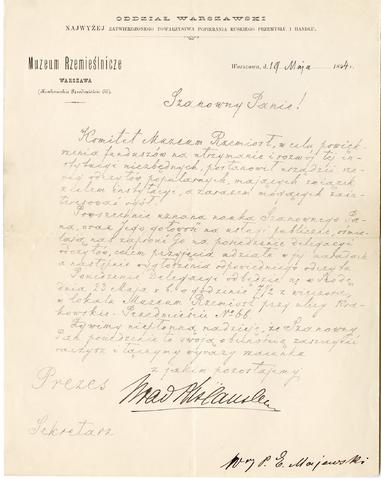 ODDZIAŁ WARSZAWSKI
NAJWYŻEJ ZATWIERDZONEGO TOWARZYSTWA POPIERANIA RUSKIEGO PRZEMYSŁU I HANDLU.
Muzeum Rzemieślnicze
WARSZAWA
(Krakowskie Przedmieście 66)
Warszawa, d. 19 Maja 1894 r.
Szanowny Panie!
Komitet Muzeum Rzemiosł, w celu powięk-
szenia funduszów na utrzymanie i rozwój tej in-
stytucyi niezbędnych, postanowił urządzić sze-
reg odczytów popularnych, mających związek
z celem instytucyi, a zarazem mogących zain-
teresować ogół.
Powszechnie uznana nauka Szanownego Pa-
na, oraz jego gotowość na usługi publiczne, ośmie-
la nas zaprosić Go na posiedzenie delegacyi
odczytów, celem przyjęcia udziału w jej naradach
a następnie wygłoszenia odpowiedniego odczytu.
Posiedzenie Delegacyi odbędzie się w Środę
23 Maja r.b. o godzinie 7½ z wieczora,
w lokalu Muzeum Rzemiosł przy ulicy Kra-
kowskie-Przedmieście No 66.
Żywimy niepłonną nadzieję, że Szanowny
Pan posiedzenie to swoją obecnością zaszczycić
raczysz i łączymy wyrazy szacunku
z jakim pozostajemy
Prezes
Sekretarz
P. E. Majewski